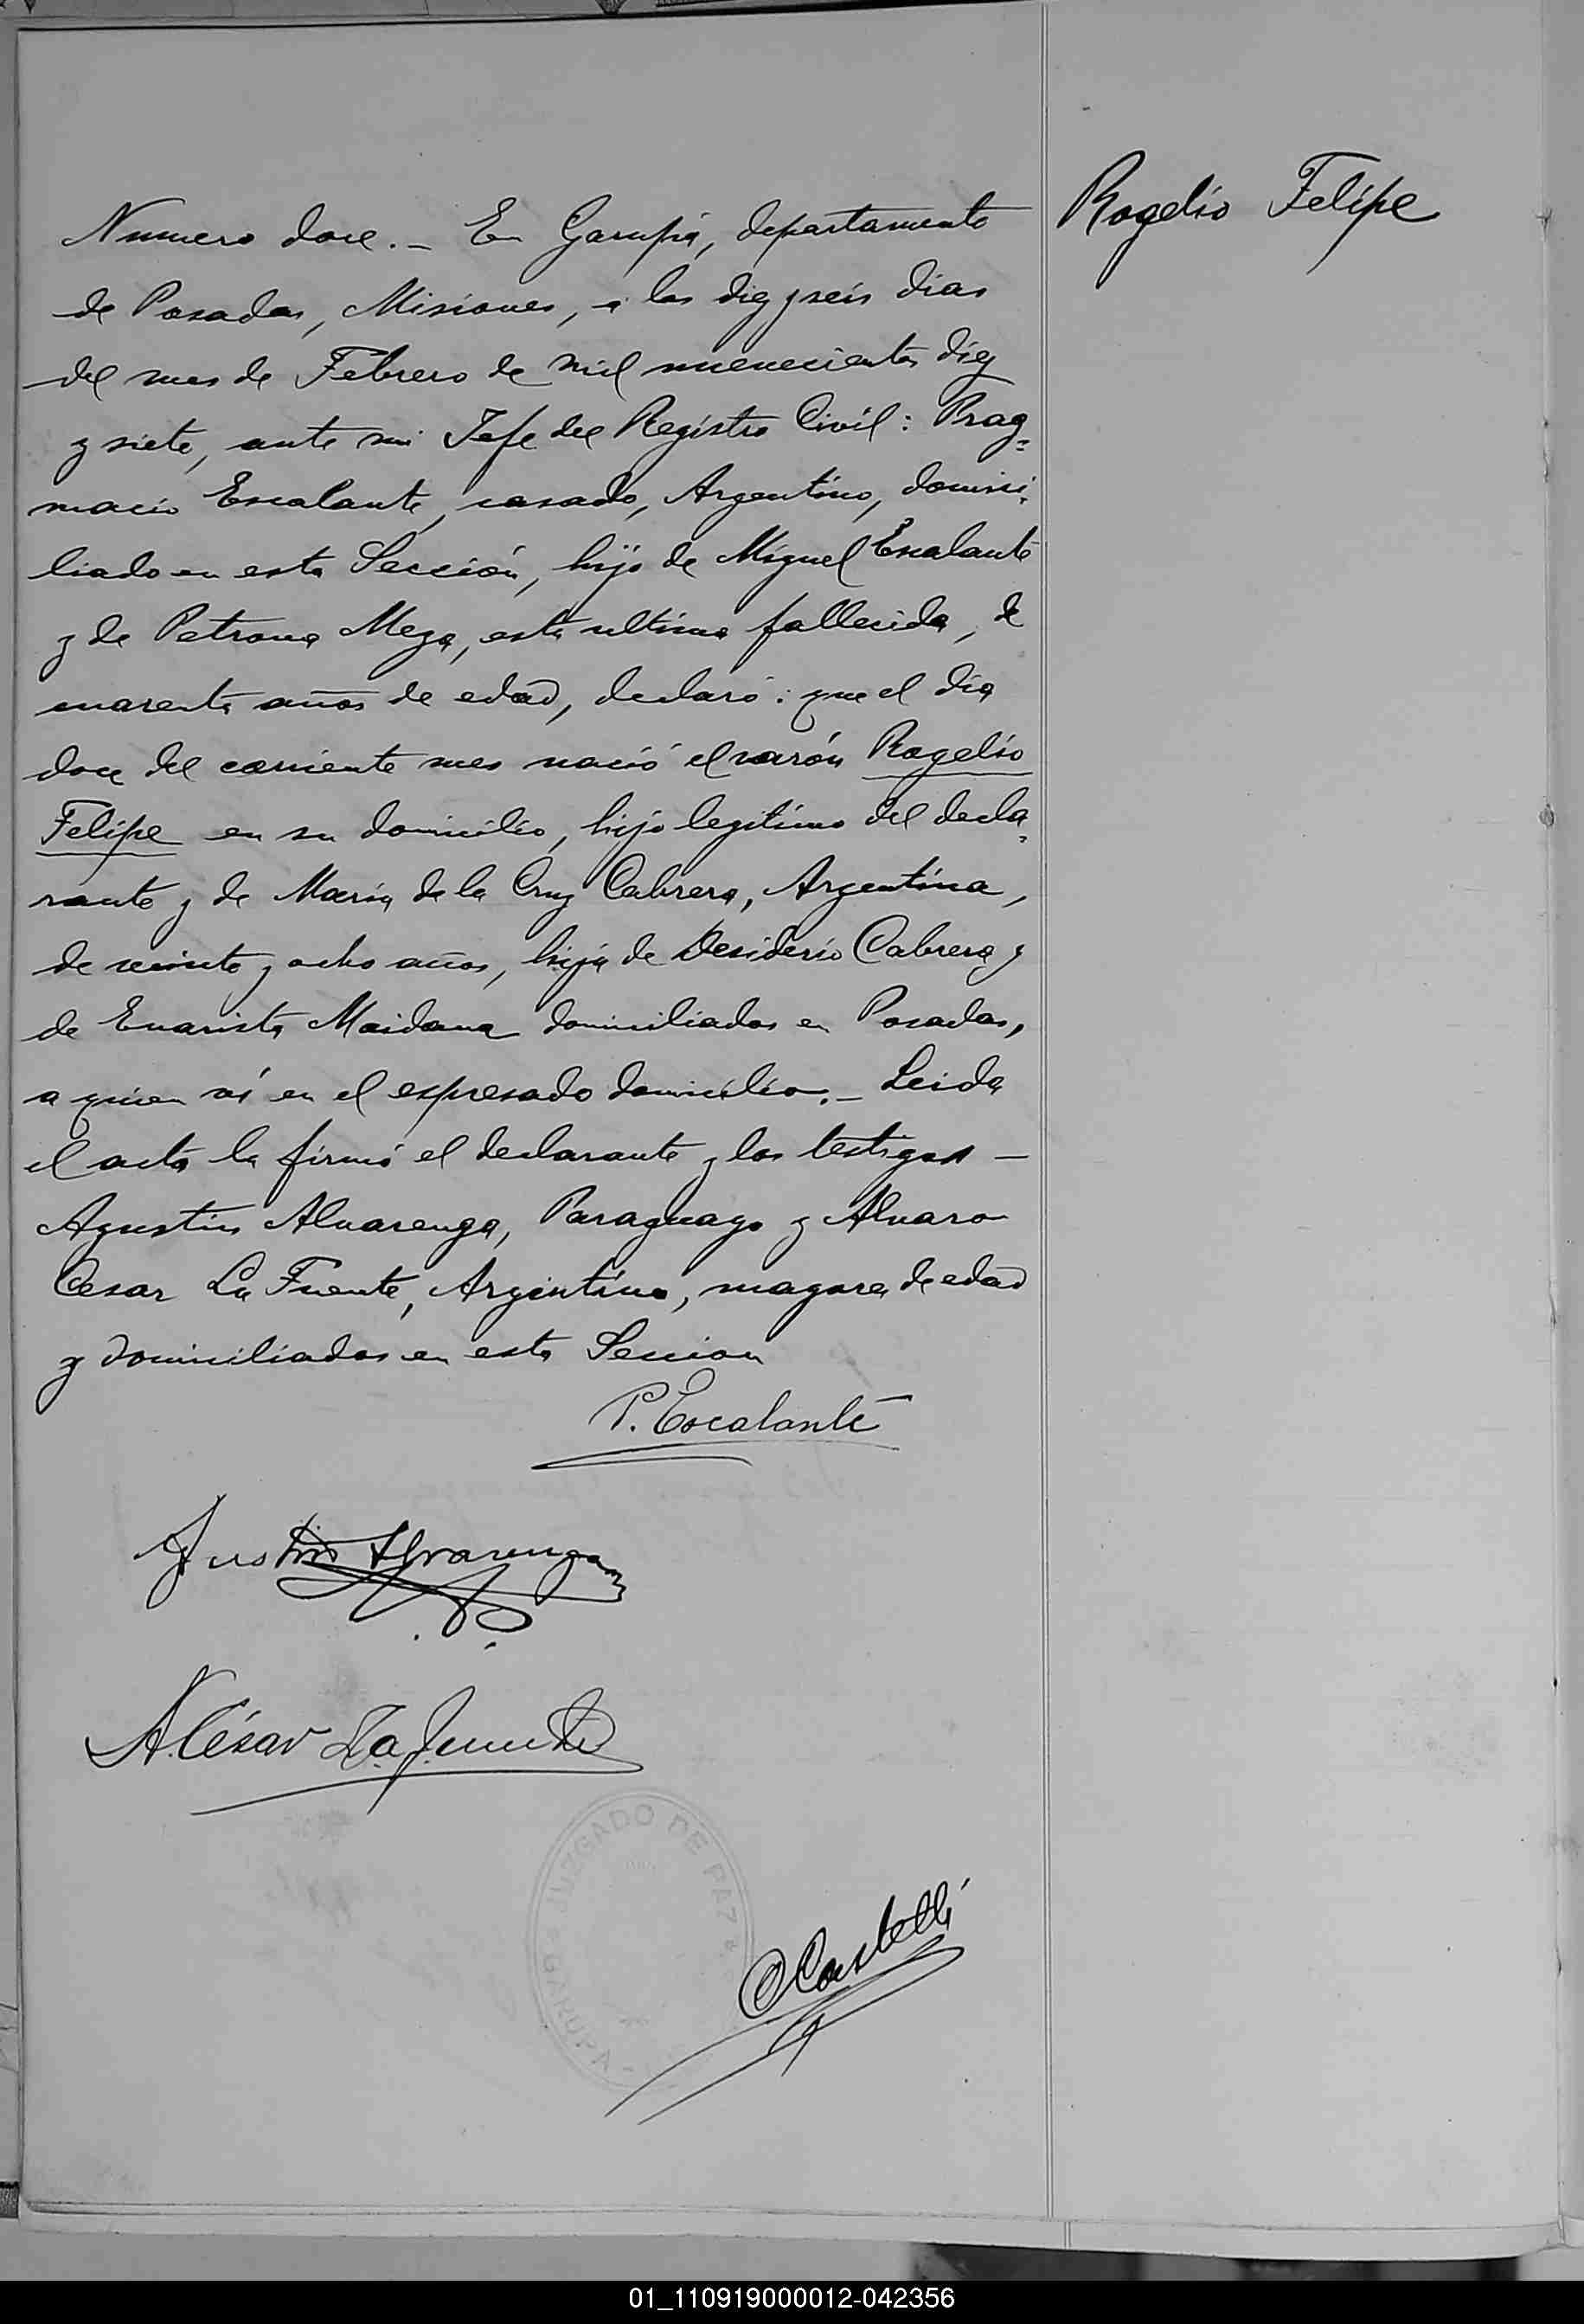 Rogelio Felipe
Numero doce. - En Garupá, departamento
de Posadas, Misiones, a los diez y seis dias
del mes de Febrero de mil novecientos diez
y siete, ante mi Jefe del Registro Civil: Prag=
macio Escalante, casado, Argentino, domici=
liado en esta Sección, hijo de Miguel Escalante
y de Petrona Meza, esta ultima fallecida, de
cuarenta años de edad, declaró: que el dia
doce del corriente mes nació el varón Rogelio
Felipe en su domicilio, hijo legitimo del decla=
rante y de Maria de la Cruz Cabrera, Argentina,
de veinte y ocho años, hija de Desiderio Cabrera y
de Evarista Maidana domiciliados en Posadas,
a quien ví en el espresado domicilio. - Leida
el acta la firmó el declarante y los testigos -
Agustin Alvarenga, Paraguayo y Alvaro
Cesar La Fuente, Argentino, mayores de edad
y domiciliados en esta Seccion
P. Escalante
Agustin Alvarenga
A. César La Fuente
JUZGADO DE PAZ
GARUPA
O Castelli
01_110919000012-042356